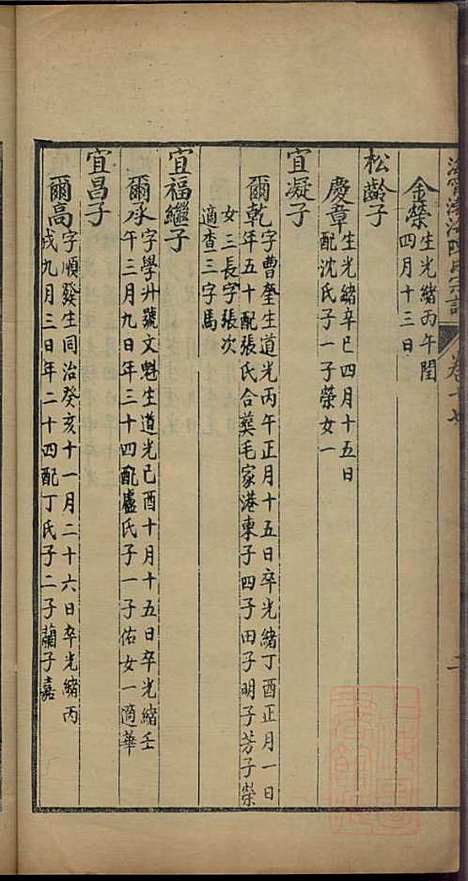 金榮
生光緒丙午閏
四月十三日
松齡子
慶章
生光緒辛巳四月十五日
配沈氏子一子榮女一
宜凝子
爾乾
字曹奎生道光丙午正月十五日卒光緒丁酉正月一日
年五十配張氏合葬毛家港東子四子田子明子芳子榮
女三長字張次
適查三字馬
宜福繼子
爾承
字學升號文魁生道光己酉十月十五日卒光緒壬
午三月九日年三十四配盧氏子一子佑女一適華
宜昌子
爾高
字順發生同治癸亥十一月二十六日卒光緒丙
戌九月三日年二十四配丁氏子二子蘭子嘉
二